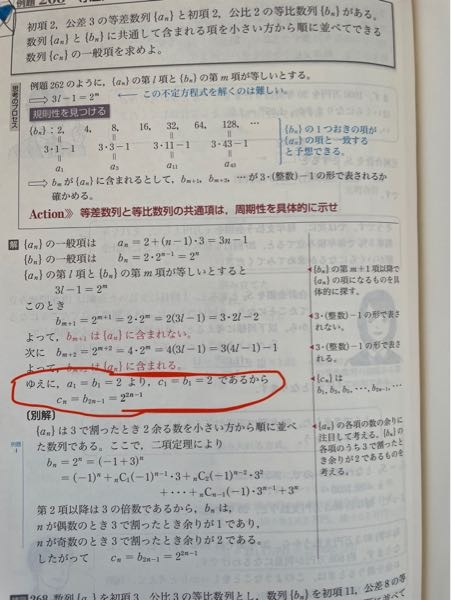 初項2, 公差3の等差数列{aₙ}と初項2, 公比2の等比数列{bₙ}がある。
数列{aₙ}と{bₙ}に共通して含まれる項を小さい方から順に並べてできる
数列{cₙ}の一般項を求めよ。
思考のプロセス
例題262のように, {aₙ}の第l項と{bₙ}の第m項が等しいとする。
⟹ 3l-1=2ᵐ ← この不定方程式を解くのは難しい。
規則性を見つける
{bₙ}: 2, 4, 8, 16, 32, 64, 128, …
3・1-1 3・3-1 3・11-1 3・43-1
a₁ a₃ a₁₁ a₄₃
{bₙ}の1つおきの項が
{aₙ}の項と一致する
と予想できる。
⟹ bₘが{aₙ}に含まれるとして, bₘ₊₁, bₘ₊₂, … が3・(整数)-1の形で表されるか
確かめる。
Action》 等差数列と等比数列の共通項は, 周期性を具体的に示せ
解 {aₙ}の一般項は aₙ=2+(n-1)・3=3n-1
{bₙ}の一般項は bₙ=2・2ⁿ⁻¹=2ⁿ
{aₙ}の第l項と{bₙ}の第m項が等しいとすると
3l-1=2ᵐ
このとき
bₘ₊₁=2ᵐ⁺¹=2・2ᵐ=2(3l-1)=3・2l-2
よって, bₘ₊₁は{aₙ}に含まれない。
次に bₘ₊₂=2ᵐ⁺²=4・2ᵐ=4(3l-1)=3(4l-1)-1
よって, bₘ₊₂は{aₙ}に含まれる。
ゆえに, a₁=b₁=2 より, c₁=b₁=2 であるから
cₙ=b₂ₙ₋₁=2²ⁿ⁻¹
◀{bₙ}の第m+1項以降で
{aₙ}の項になるものを具
体的に探す。
◀3・(整数)-1の形で表さ
れない。
◀3・(整数)-1の形で表さ
れる。
◀{cₙ}は
b₁, b₃, b₅, …, b₂ₙ₋₁, …
(別解)
{aₙ}は3で割ったとき2余る数を小さい方から順に並べ
た数列である。ここで, 二項定理により
bₙ=2ⁿ=(-1+3)ⁿ
=(-1)ⁿ+ₙC₁(-1)ⁿ⁻¹・3+ₙC₂(-1)ⁿ⁻²・3²
+・・・+ₙCₙ₋₁(-1)・3ⁿ⁻¹+3ⁿ
第2項以降は3の倍数であるから, bₙは,
nが偶数のとき3で割ったとき余りが1であり,
nが奇数のとき3で割ったとき余りが2である。
したがって cₙ=b₂ₙ₋₁=2²ⁿ⁻¹
◀{aₙ}の各項の数の余りに
注目して考える。{bₙ}の
各項のうち3で割ったと
き余りが2であるものを
考える。
268 数列{aₙ}を初項3, 公比3の等比数列とし, 数列{bₙ}を初項11, 公差8の等